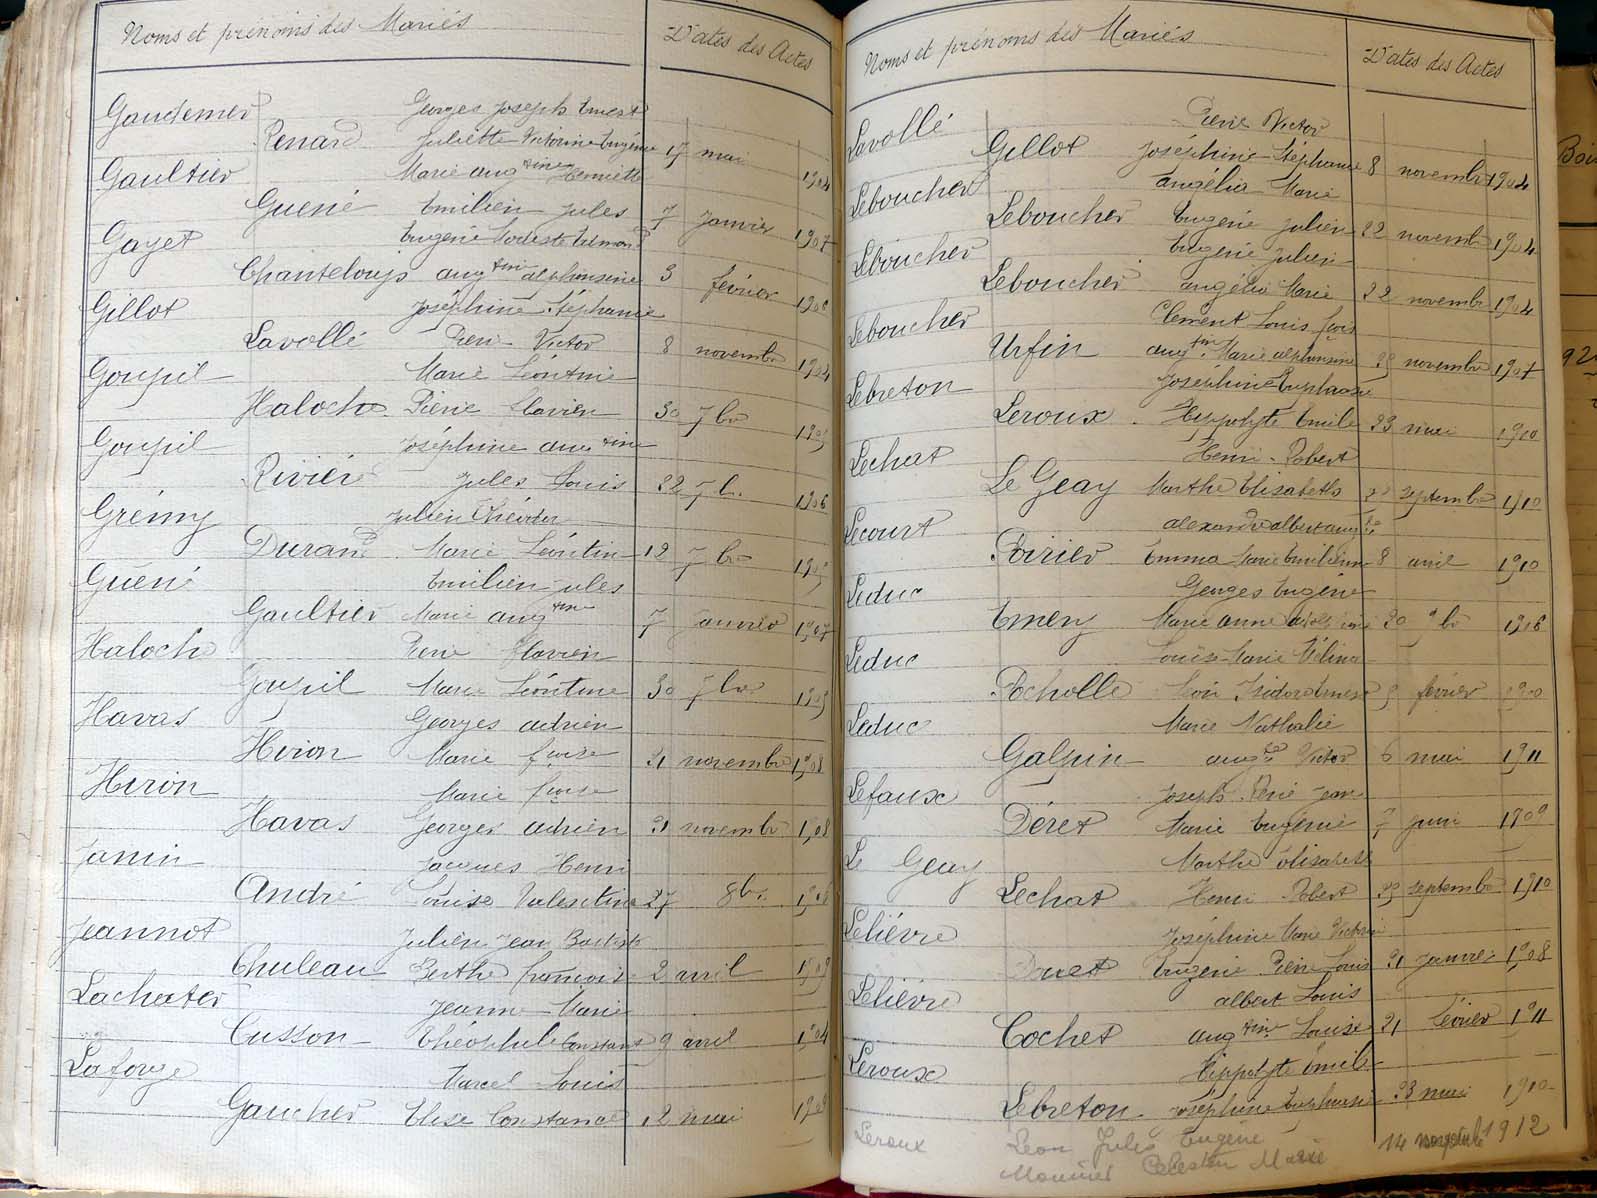 Noms et prénoms des Mariés Dates des Actes
Gaudemer Georges Joseph Ernest
Renard Juliette Victorine Eugénie 17 mai 1904
Gaultier Marie Aug tine Henriette
Guené Emilien Jules 7 Janvier 1907
Gayet Eugène Modeste
Chanteloup Aug tine alphonsine 3 février
Gillot Joséphine Stéphanie
Lavollé Pierre Victor 8 novembre 1904
Goupil Marie Léontine
Haloche Pierre Flavien 30 7bre 1905
Goupil Joséphine aug tine
Rivière Jules Louis 22 7b. 1906
Grémy Julien Théodore
Durand Marie Léontine 12 7bre 1905
Guené Emilien Jules
Gaultier Marie aug tine 7 Janvier 1907
Haloche Pierre Flavien
Goupil Marie Léontine 30 7bre 1905
Havas Georges adrien
Hiron Marie fçoise 21 novembre 1908
Hiron Marie fçoise
Havas Georges adrien 21 novembre 1908
Jamin Jacques Henri
André Louise Valentine 27 8b.
Jeannot Julien Jean Baptiste
Chuleau Berthe françoise 2 avril 1909
Lacheter Jeanne Marie
Cusson Théophile Constant 9 avril 1904
Laforge Marcel Louis
Gaucher Elise Constance 12 mai
Noms et prénoms des Mariés Dates des Actes
Lavollé Pierre Victor
Gillot Joséphine Stéphanie 8 novembre 1904
Leboucher angélia Marie
Leboucher Eugène Julien 22 novemb 1904
Leboucher Eugène Julien
Leboucher angélia Marie 22 novembre 1904
Leboucher Clement Louis fçois
Urfin aug tine Marie alphonsine 25 novembre 1907
Lebreton Joséphine Euphrasie
Leroux Hippolyte Emile 23 mai 1910
Lechat Henri Robert
Le Geay Marthe Elisabeth septembre 1910
Lecourt alexandre albert aug te
Poirier Emma Marie Emilienne 8 avril 1910
Leduc Georges Eugène
Emery Marie anne 20 9bre 1906
Leduc Louise Marie Mélina
Pocholle Léon Isidore Ernest février
Leduc Marie Nathalie
Galpin aug te Victor 6 mai 1911
Lefaux Joseph René Jean
Déret Marie Eugénie 7 juin 1909
Le Geay Marthe élisabeth
Lechat Henri Robert septembre 1910
Lelièvre Joséphine Marie Victorine
Douet Eugène Pierre Louis 21 Janvier 1908
Lelièvre albert Louis
Cochet aug tine Louise 21 février 1911
Leroux Hippolyte Emile
Lebreton Joséphine Euphrasie 23 mai 1910
Leroux Leon Jules Eugène 14 1912
Monnier Celestin Marie
Boi
92